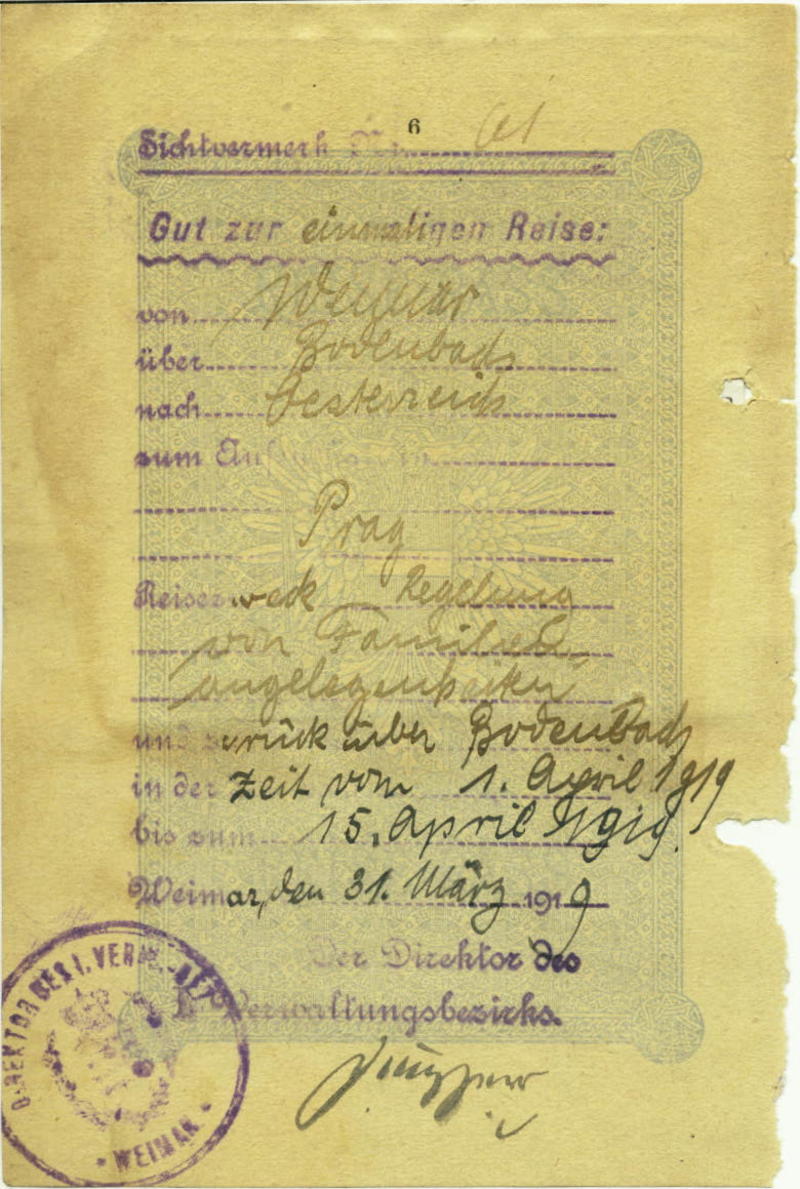 6
Sichtvermerk Nr. 61
Gut zur einmaligen Reise:
von Weimar
über Bodenbach
nach Oesterreich
zum
Prag
Reisezweck Regelung
von Familien-
angelegenheiten
und zurück über Bodenbach
in der Zeit vom 1. April 1919
bis zum 15. April 1919.
Weimar, den 31. März 1919
Der Direktor des
I. Verwaltungsbezirks.
DIREKTOR DES I. VERW. BEZ.
WEIMAR